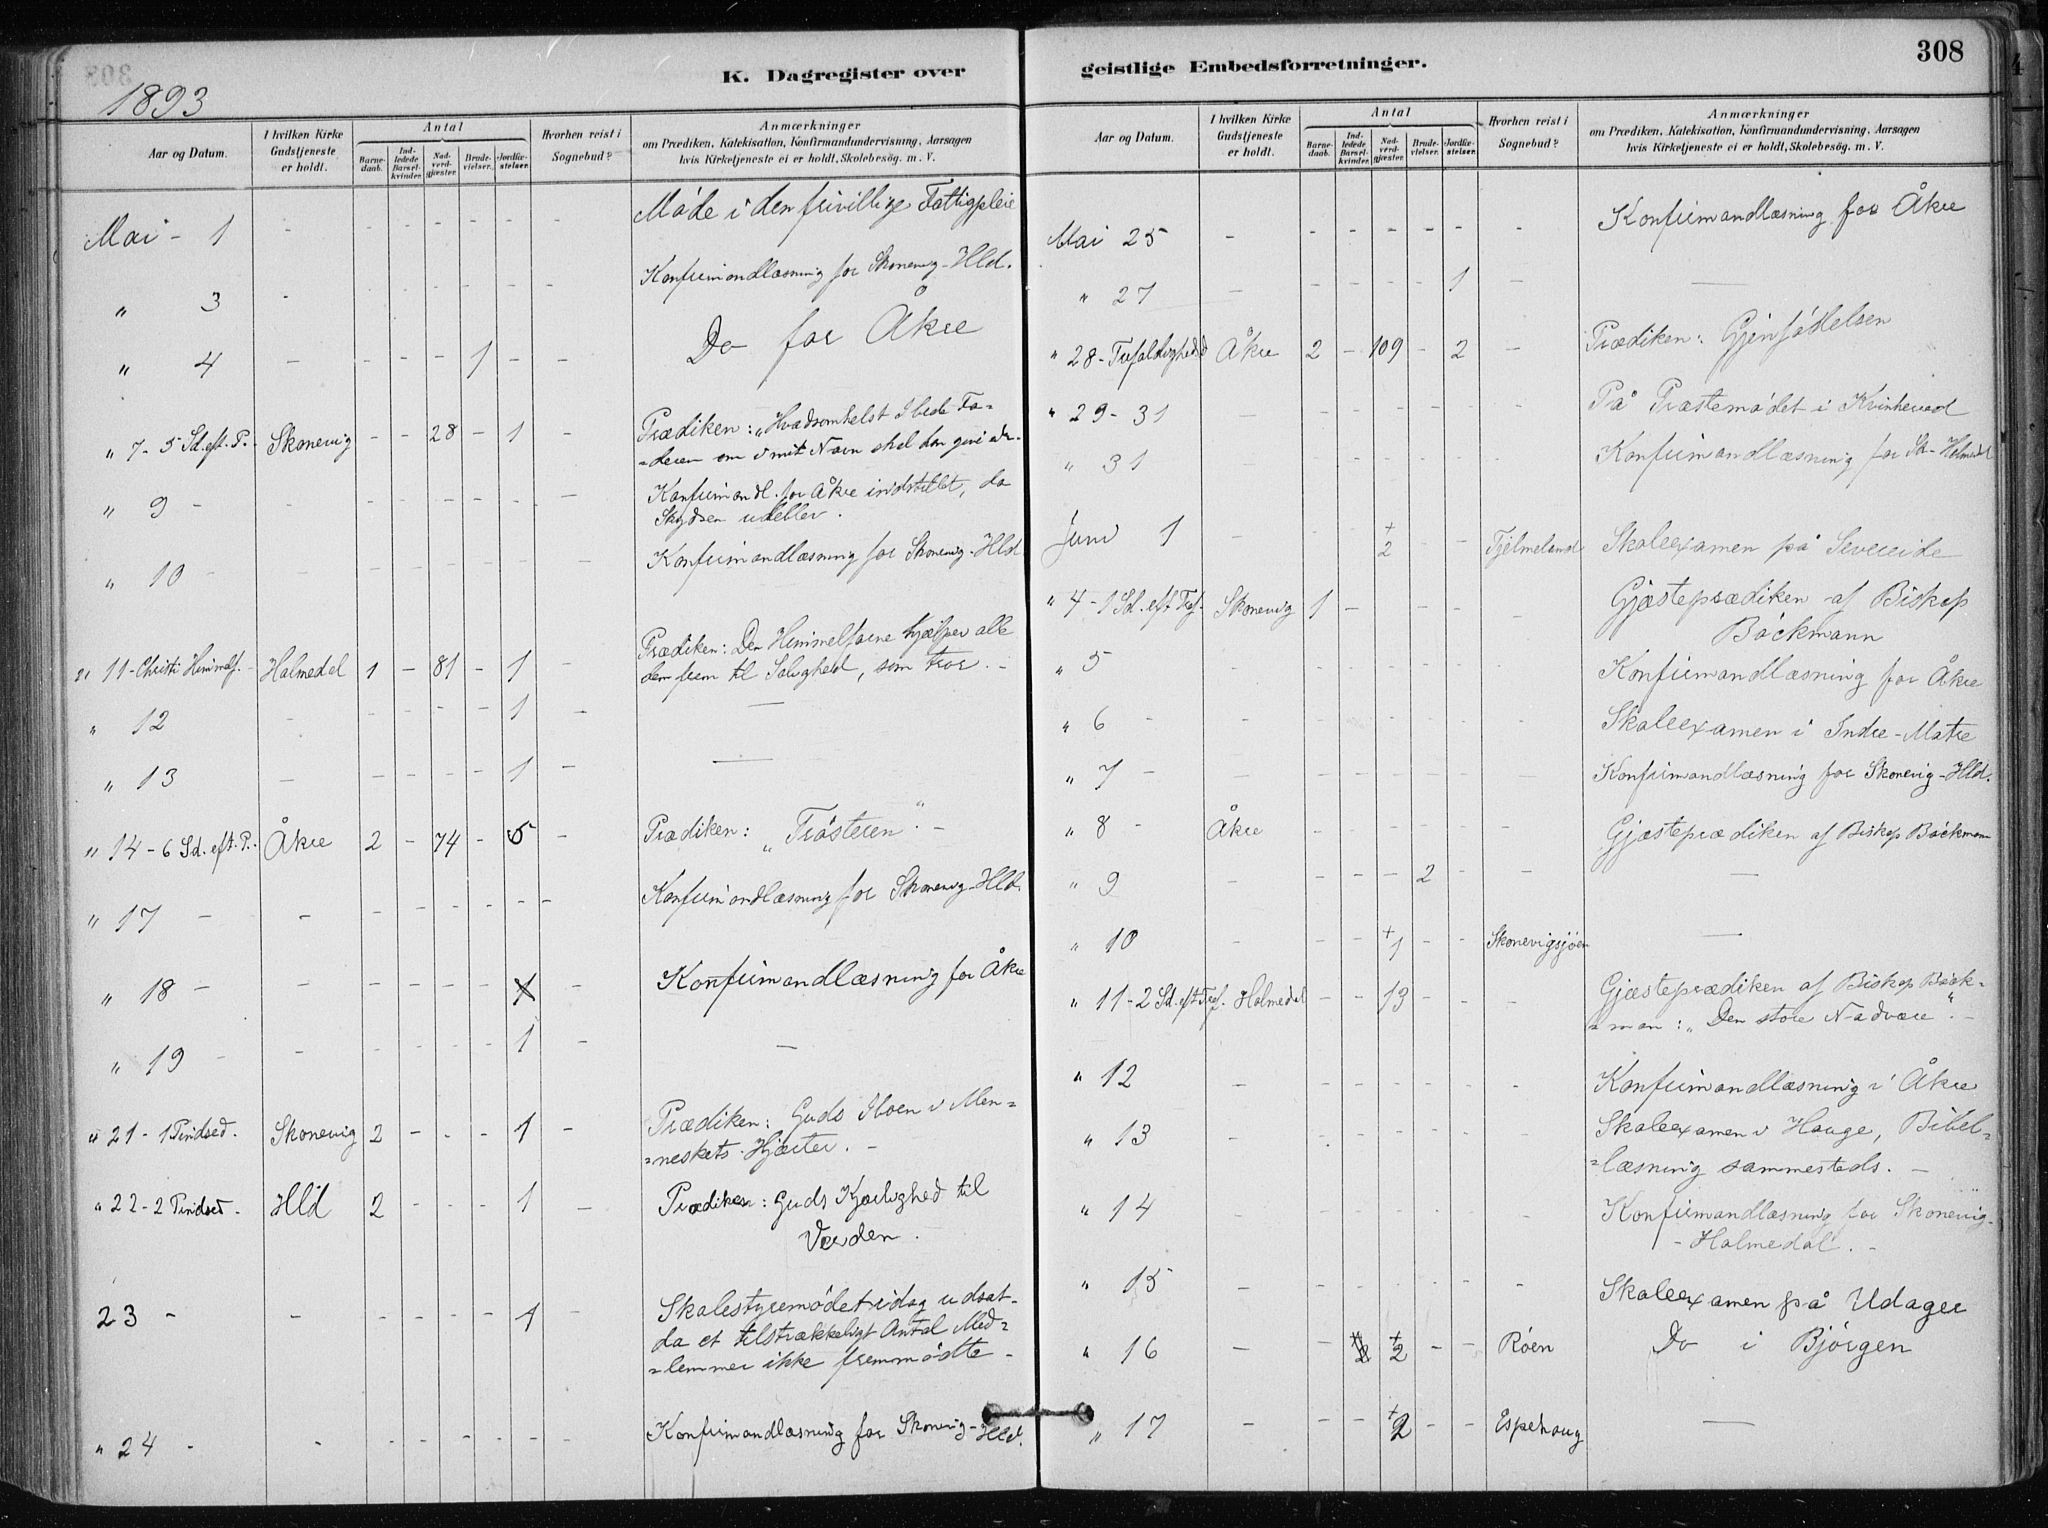 308
1893
K. Dagregister over
Aar og Datum.
I hvilken Kirke Gudstjeneste er holdt.
Antal
Barne-daab.
Ind-ledede Barsel-kvinder.
Nad-verd-gjæster.
Brude-vielser.
Jordfæ-stelser.
Hvorhen reist i Sognebud?
Anmærkninger
om Prædiken, Katekisation, Konfirmandundervisning, Aarsagen
hvis Kirketjeneste ei er holdt, Skolebesøg. m. V.
Mai - 1 - - - - - - - Møde i den frivillige Fattigpleie
" 3 - - - - - - - Konfirmandlæsning for Skonevig-Hld.
" 4 - - - - 1 - - Do for Åkre
" 7 - 5 Sd. eft. P. - Skonevig - - 28 - 1 - Prædiken: "Hvadsomhelst I bede Fa=
=deren om i mit Navn skal han give eder
" 9 - - - - - - - - Konfirmandl. for Åkre indstillet, da
Skydsen udeblev.
" 10 - - - - - - - - Konfirmandlæsning for Skonevig-Hld
" 11 - Christi Himmelf. - Holmedal 1 - 81 - 1 - Prædiken: Den Himmelfarne hjælper alle
dem frem til Salighed, som tror. -
" 12 - - - - - 1 - —
" 13 - - - - - 1 - —
" 14 - 6 Sd. eft. P. - Åkre 2 - 74 - 5 - Prædiken: "Trösteren". -
" 17 - - - - - - - - Konfirmandlæsning for Skonevig-Hld.
" 18 - - - - - - - Konfirmandlæsning for Åkre
" 19 - - - - - - 1 - -
" 21 - 1 Pindsed. Skonevig 2 - - - 1 - Prædiken: Guds Iboen i Men=
=neskets Hjærter. -
" 22 - 2 Pindsed - Hld 2 - - - 1 - Prædiken: Guds Kjærlighed til
Verden.
23 - - - - - - 1 - Skolestyremødet idag udsat-
da et tilstrækkeligt Antal Med=
=lemmer ikke fremmødte -
" 24 - - - - - - - - Konfirmandlæsning for Skonevig-Hld.
geistlige Embedsforretninger.
308
Aar og Datum.
I hvilken Kirke Gudstjeneste er holdt.
Antal
Barne-daab.
Ind-ledede Barsel-kvinder.
Nad-verd-gjæster.
Brude-vielser.
Jordfæ-stelser.
Hvorhen reist i Sognebud?
Anmærkninger
om Prædiken, Katekisation, Konfirmandundervisning, Aarsagen
hvis Kirketjeneste ei er holdt, Skolebesøg. m. V.
Mai 25 - - - - - - - Konfirmandlæsning for Åkre
" 27 - - - - - 1 - —
" 28 - Trefoldighedsd Åkre 2 - 109 - 2 - Prædiken: Gjenfödelsen
" 29 - 31 - - - - - - - På Præstemödet i Kvinherred
" 31 - - - - - - - Konfirmandlæsning for Sk-Holmedal
Juni 1 - - - +2 - - Fjelmeland Skoleexamen på Severeide
" 4 - 1 Sd. eft Tref. Skonevig 1 - - - - - Gjæsteprædiken af Biskop
Böckmann
" 5 - - - - - - - Konfirmandlæsning for Åkre
" 6 - - - - - - - - Skoleexamen i Indre-Matre
" 7 - - - - - - - - Konfirmandlæsning for Skonevig-Hld.
" 8 - Åkre - - - - - - Gjæsteprædiken af Biskop Böckmann
" 9 - - - - 2 - - —
" 10 - - - +1 - - Skonevigsjöen —
" 11 - 2 Sd. eft Tref. Holmedal - - 13 - - - Gjæsteprædiken af Biskop Böck=
=man: "Den store Nadvere". -
" 12 - - - - - - - Konfirmandlæsning i Åkre
" 13 - - - - - - - Skoleexamen i Hauge, Bibel=
=læsning sammesteds. -
" 14 - - - - - - - Konfirmandlæsning for Skonevig-
- Holmedal. -
" 15 - - - - - - - Skoleexamen på Udager
" 16 - - +2 - - Röen Do i Björgen
" 17 - - - +2 - - Espehaug —